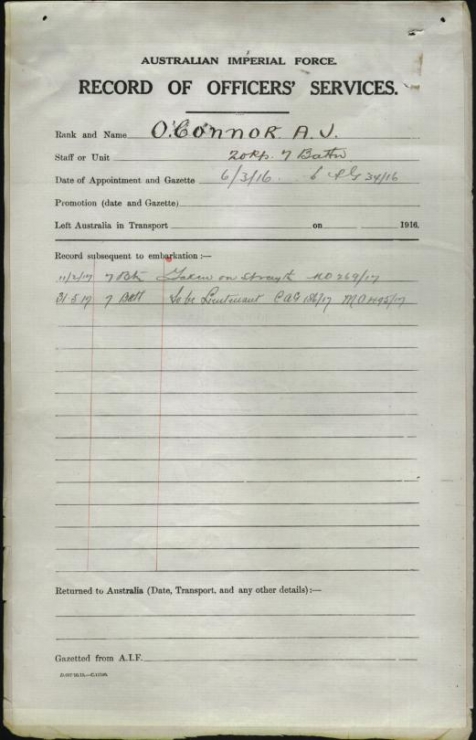 AUSTRALIAN IMPERIAL FORCE.
RECORD OF OFFICERS' SERVICES.
Rank and Name O'Connor A. J.
Staff or Unit 7 Battn
Date of Appointment and Gazette 6/3/16 34/16
Promotion (date and Gazette)
Left Australia in Transport on 1916.
Record subsequent to embarkation :—
11/2/17 7 Btn Taken on Strength MO 269/17
31 5 17 7 Batt To be Lieutenant CAG MO
Returned to Australia (Date, Transport, and any other details) :—
Gazetted from A.I.F.